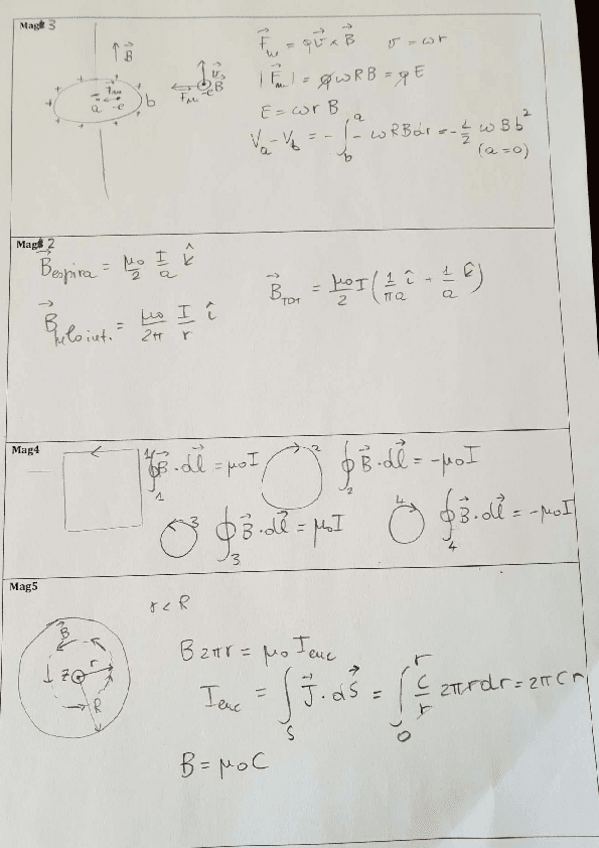 Mag 3
B⃗
F⃗m = qv⃗ × B⃗    v = ωr
a -e b
F⃗m -e B⃗ v⃗
|F⃗m| = qωRB = qE
E = ωr B
Va - Vb = - ∫_b^a - ωRBdr = -1/2 ωBb²
(a=0)
Mag 2
B⃗espira = μ₀/2 I/a k̂
B⃗TOT = μ₀I/2 (1/πa î - 1/a k̂)
B⃗ = μ₀/2π I/r î
Mag4
1 ∮₁ B⃗·dl⃗ = μ₀I    2 ∮₂ B⃗·dl⃗ = -μ₀I
3 ∮₃ B⃗·dl⃗ = μ₀I    4 ∮₄ B⃗·dl⃗ = -μ₀I
Mag5
r < R
B⃗ z r R
B2πr = μ₀ Ienc
Ienc = ∫_S J⃗·dS⃗ = ∫_0^r C/r 2πrdr = 2πCr
B = μ₀C